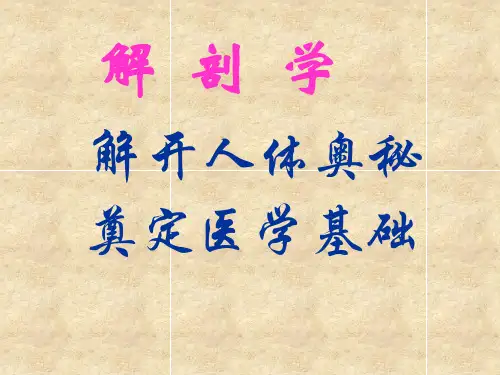 解 剖 学
解开人体奥秘
奠定医学基础